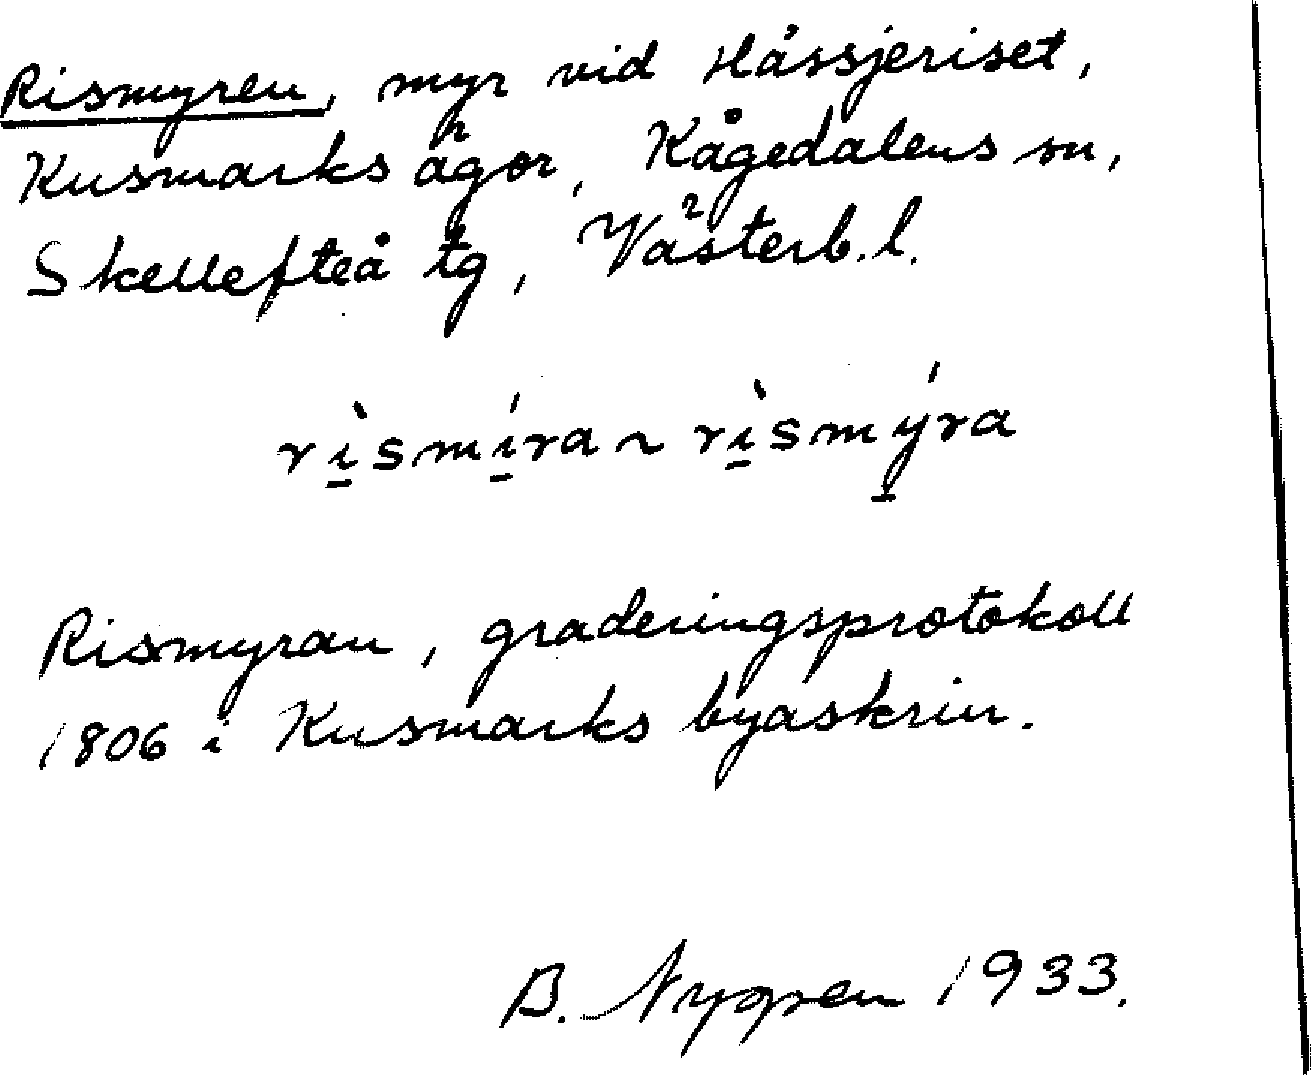 Rismyren, myr vid Håssjeriset,
Kusmarks ägor, Kågedalens sn,
Skellefteå tg, Västerb. l.
rı̱̀smı̱́ra ~ rı̱̀smý̱ra
Rismyran, graderingsprotokoll
1806 i Kusmarks byaskrin.
B. Nygren 1933.